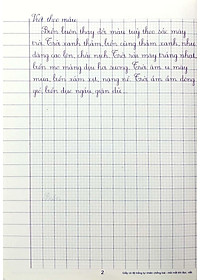 Viết theo mẫu:
Biển luôn thay đổi màu tuỳ theo sắc mây
trời. Trời xanh thẳm, biển cũng thẳm xanh, như
dâng cao lên, chắc nịch. Trời rải mây trắng nhạt,
biển mơ màng dịu hơi sương. Trời âm u, mây
mưa, biển xám xịt, nặng nề. Trời ầm ầm dông
gió, biển đục ngầu, giận dữ...
2